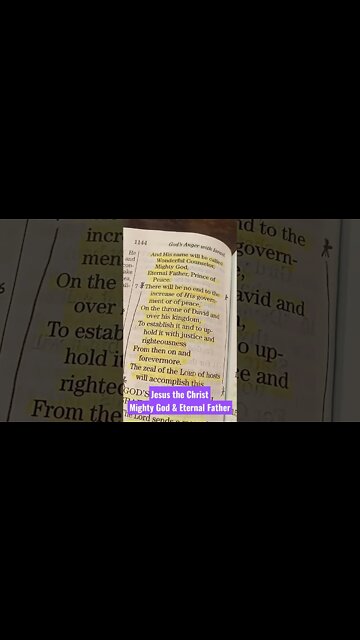 1144 God's Anger with Israel
And His name will be called
Wonderful Counselor,
Mighty God,
Eternal Father, Prince of
Peace.
7 There will be no end to the
increase of His govern-
ment or of peace,
On the throne of David and
over his kingdom,
To establish it and to up-
hold it with justice and
righteousness
From then on and
forevermore.
The zeal of the LORD of hosts
will accomplish this.
GOD'S
The Lord sends a
He
and
Jesus the Christ
Mighty God & Eternal Father
incr
men
On the
To estab
hold it
righte
From the
nd to the
govern-
avid and
o up-
e and